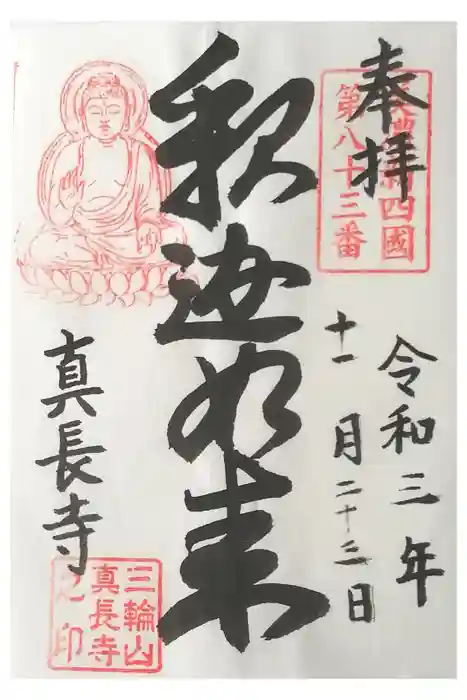 奉拝
美濃新四國
第八十三番
令和三年
十一月二十三日
釈迦如来
真長寺
三輪山
真長寺
之印